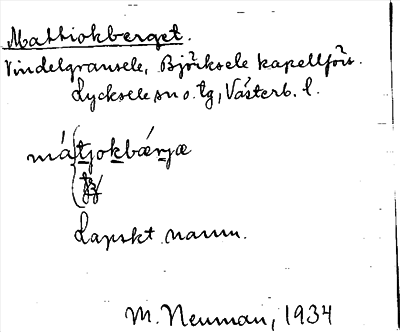 Mattiokberget.
Vindelgransele, Björksele kapellförs.
Lycksele sn o. tg, Västerb. l.
mátjokbærjæ
Lapskt namn.
M. Neuman, 1934